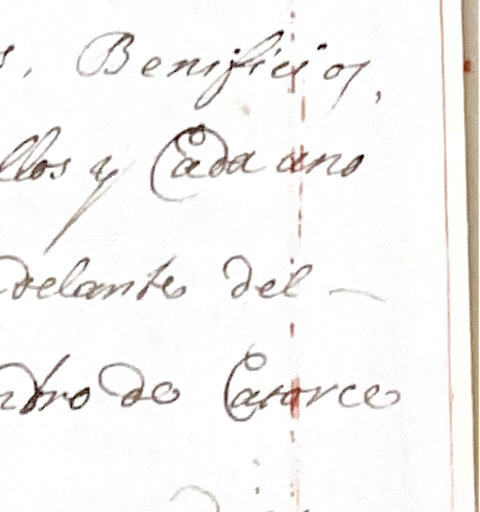 s, Benificios,
llos y Cada uno
delante del —
ntro de Catorce